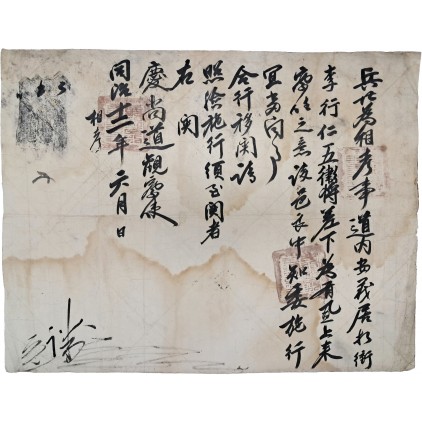 兵曹爲相考事道內安義居折衝
李行仁五衛將差下爲有置上來
察任之意該邑良中知委施行
宜當向事
合行移關請
照驗施行須至關者
右 關
慶尚道觀察使
同治十二年六月 日
相考